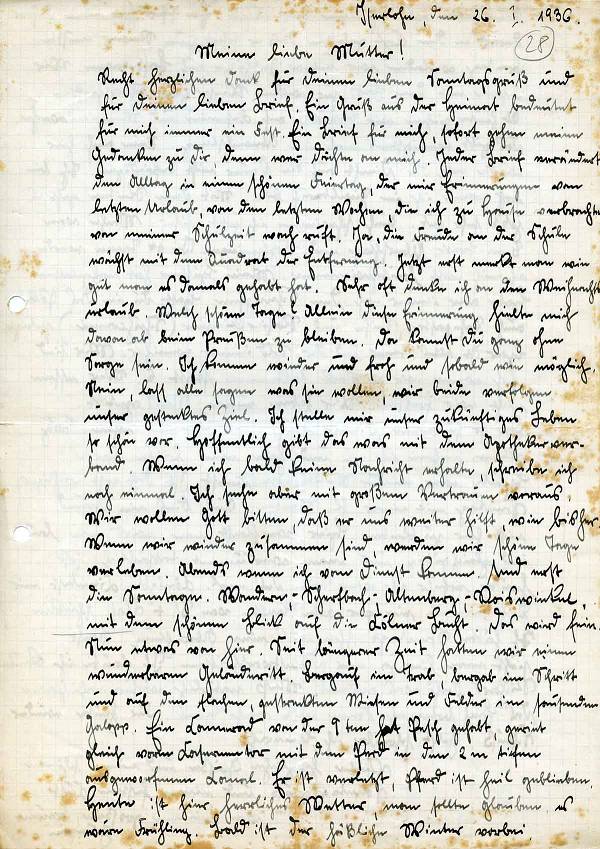 Iserlohn, den 26. I. 1936.
28
Meine liebe Mutter!
Recht herzlichen Dank für deinen lieben Sonntagsgruß und
für deinen lieben Brief. Ein Gruß aus der Heimat bedeutet
für mich immer ein Fest. Ein Brief für mich, sofort gehen meine
Gedanken zu dir, denn wer dächte an mich. Jeder Brief verändert
den Alltag in einen schönen Feiertag, der mir Erinnerungen vom
letzten Urlaub, von den letzten Wochen, die ich zu Hause verbrachte
von meiner Schulzeit wach ruft. Ja, die Freude an der Schule
wächst mit dem Quadrat der Entfernung. Jetzt erst merkt man wie
gut man es damals gehabt hat. Sehr oft denke ich an den Weihnachts
urlaub. Welch schöne Tage! Allein diese Erinnerung hielte mich
davon ab beim Preußen zu bleiben. Da kannst du ganz ohne
Sorge sein. Ich komme wieder und froh und sobald wie möglich.
Nein, lass alle sagen was sie wollen, wir beide verfolgen
unser gestecktes Ziel. Ich stelle mir unser zukünftiges Leben
so schön vor. Hoffentlich gibt das was mit dem Apothekerver-
band. Wenn ich bald keine Nachricht erhalte, schreibe ich
noch einmal. Ich sehe aber mit großem Vertrauen voraus.
Wir wollen Gott bitten, daß er uns weiter hilft, wie bisher.
Wenn wir wieder zusammen sind, werden wir schöne Tage
verleben. Abends wenn ich vom Dienst komme. Und erst
die Sonntage. Wandern, - Scherfbach -, Altenberg -, Voiswinkel,
mit dem schönen Blick auf die Kölner Bucht. Das wird fein.
Nun etwas von hier. Seit längerer Zeit hatten wir einen
wunderbaren Geländeritt. Bergauf im Trab, bergab im Schritt
und auf den flachen, gestreckten Wiesen und Felder im sausenden
Galopp. Ein Kamerad von der 9 ten hat Pech gehabt, geriet
gleich vorm Kasernentor mit dem Pferd in den 2 m tiefen
ausgeworfenen Kanal. Er ist verletzt, Pferd ist heil geblieben.
Heute ist hier herrliches Wetter, man sollte glauben es
wäre Frühling. Bald ist der häßliche Winter vorbei.